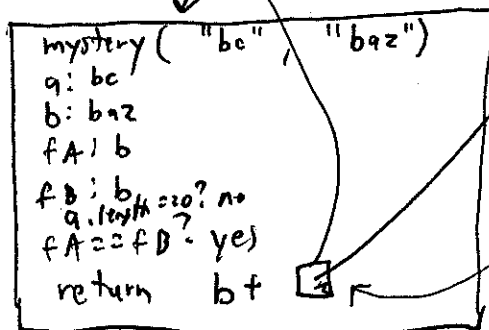 mystery( "bc" , "baz")
a: bc
b: baz
fA: b
fB: b
a.length == 0? no
fA == fB? yes
return b+